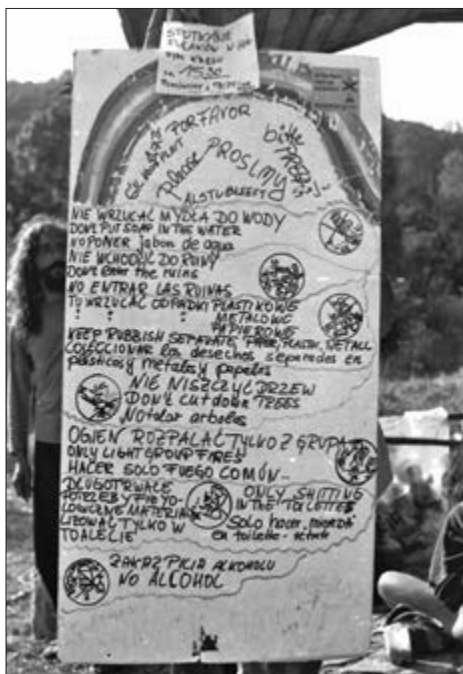 SPOTKANIE
POLAKÓW W
15.30
POR FAVOR
bitte
S'IL VOUS PLAIT
Please PROSIMY
ALSTUBLIEFT
NIE WRZUCAĆ MYDŁA DO WODY
DON'T PUT SOAP IN THE WATER
NO PONER jabon de agua
NIE WCHODZIĆ DO RUINY
DON'T Enter the ruins
NO ENTRAR LAS RUINAS
TU WRZUCAĆ ODPADKI PLASTIKOWE
METALOWE
PAPIEROWE
KEEP RUBBISH SEPARATE PAPER, PLASTIC, METALL
COLECCIONAR los desechos separados en
plasticos y metales y papeles
NIE NISZCZYĆ DRZEW
DON'T CUT down TREES
No talar arboles
OGIEŃ ROZPALAĆ TYLKO Z GRUPĄ
ONLY LIGHT GROUP FIRES
HACER SOLO FUEGO COMÚN...
DŁUGOTRWAŁE
POTRZEBY FIZJO
LOGICZNE MATERIA
LIZOWAĆ TYLKO W
TOALECIE
ONLY SHITTING
IN THE TOILETTES
Solo hacer
en toilette
ZAKAZ PICIA ALKOHOLU
NO ALCOHOL